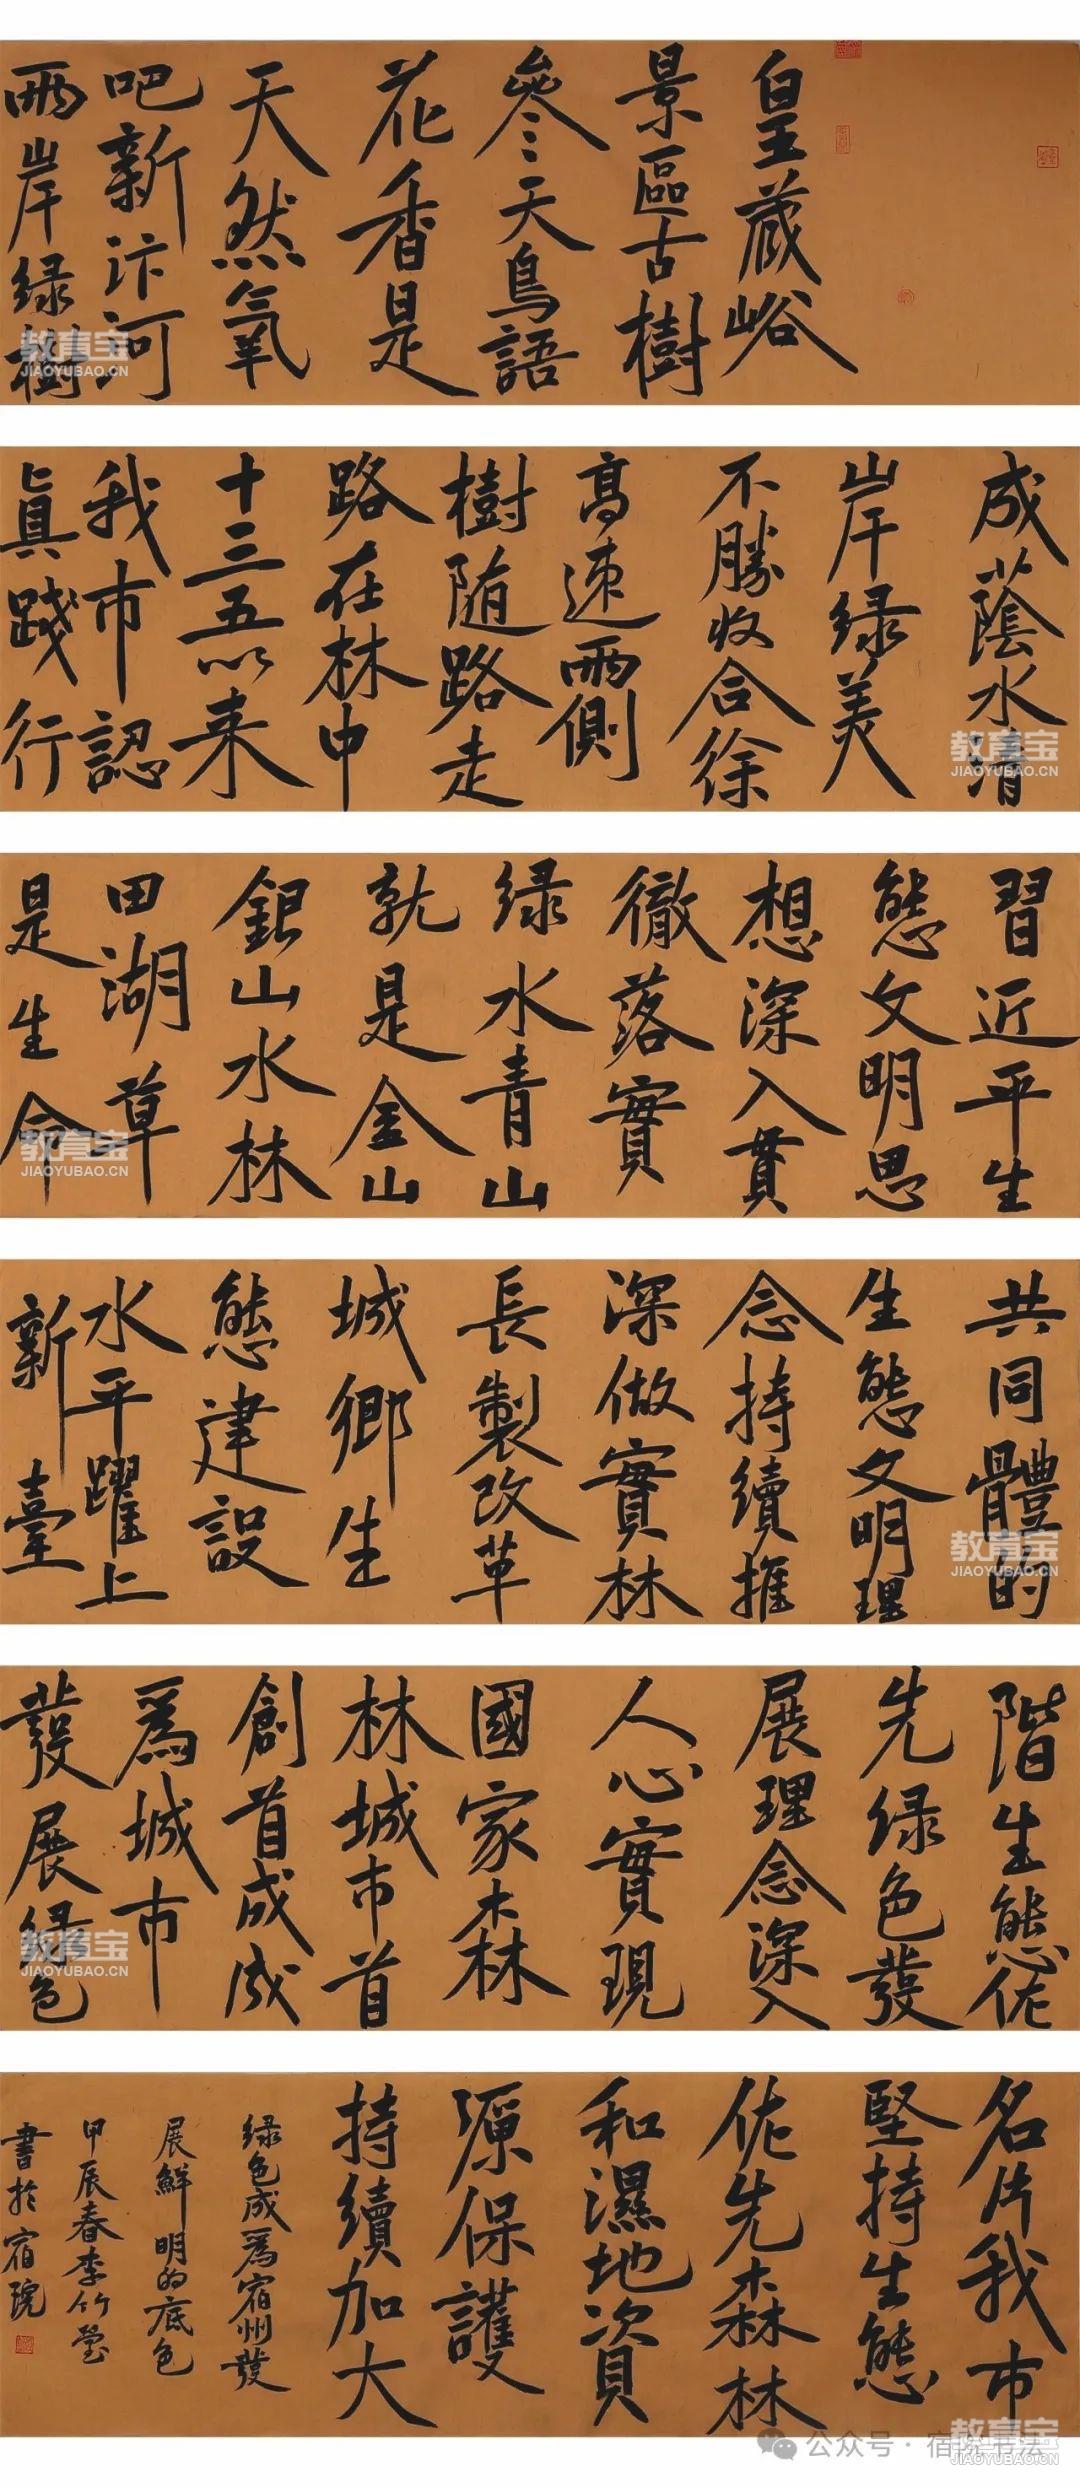 皇藏峪
景區古樹
參天鳥語
花香是
天然氧
吧新汴河
兩岸绿樹
成蔭水清
岸绿美
不勝收合徐
高速兩側
樹随路走
路在林中
十三五以来
我市認
真踐行
習近平生
態文明思
想深入貫
徹落實
绿水青山
就是金山
銀山水林
田湖草
是生命
共同體的
生態文明理
念持續推
深做實林
長製改革
城鄉生
態建設
水平躍上
新臺
階生態优
先绿色發
展理念深入
人心實現
國家森林
林城市首
創首成成
爲城市
發展绿色
名片我市
堅持生態
优先森林
和濕地資
源保護
持續加大
绿色成爲宿州發
展鮮明的底色
甲辰春李竹
書於宿院
教育宝
JIAOYUBAO.CN
教育宝
JIAOYUBAO.CN
教育宝
JIAOYUBAO.CN
教育宝
JIAOYUBAO.CN
教育宝
JIAOYUBAO.CN
公众号·宿院书法
教育宝
JIAOYUBAO.CN